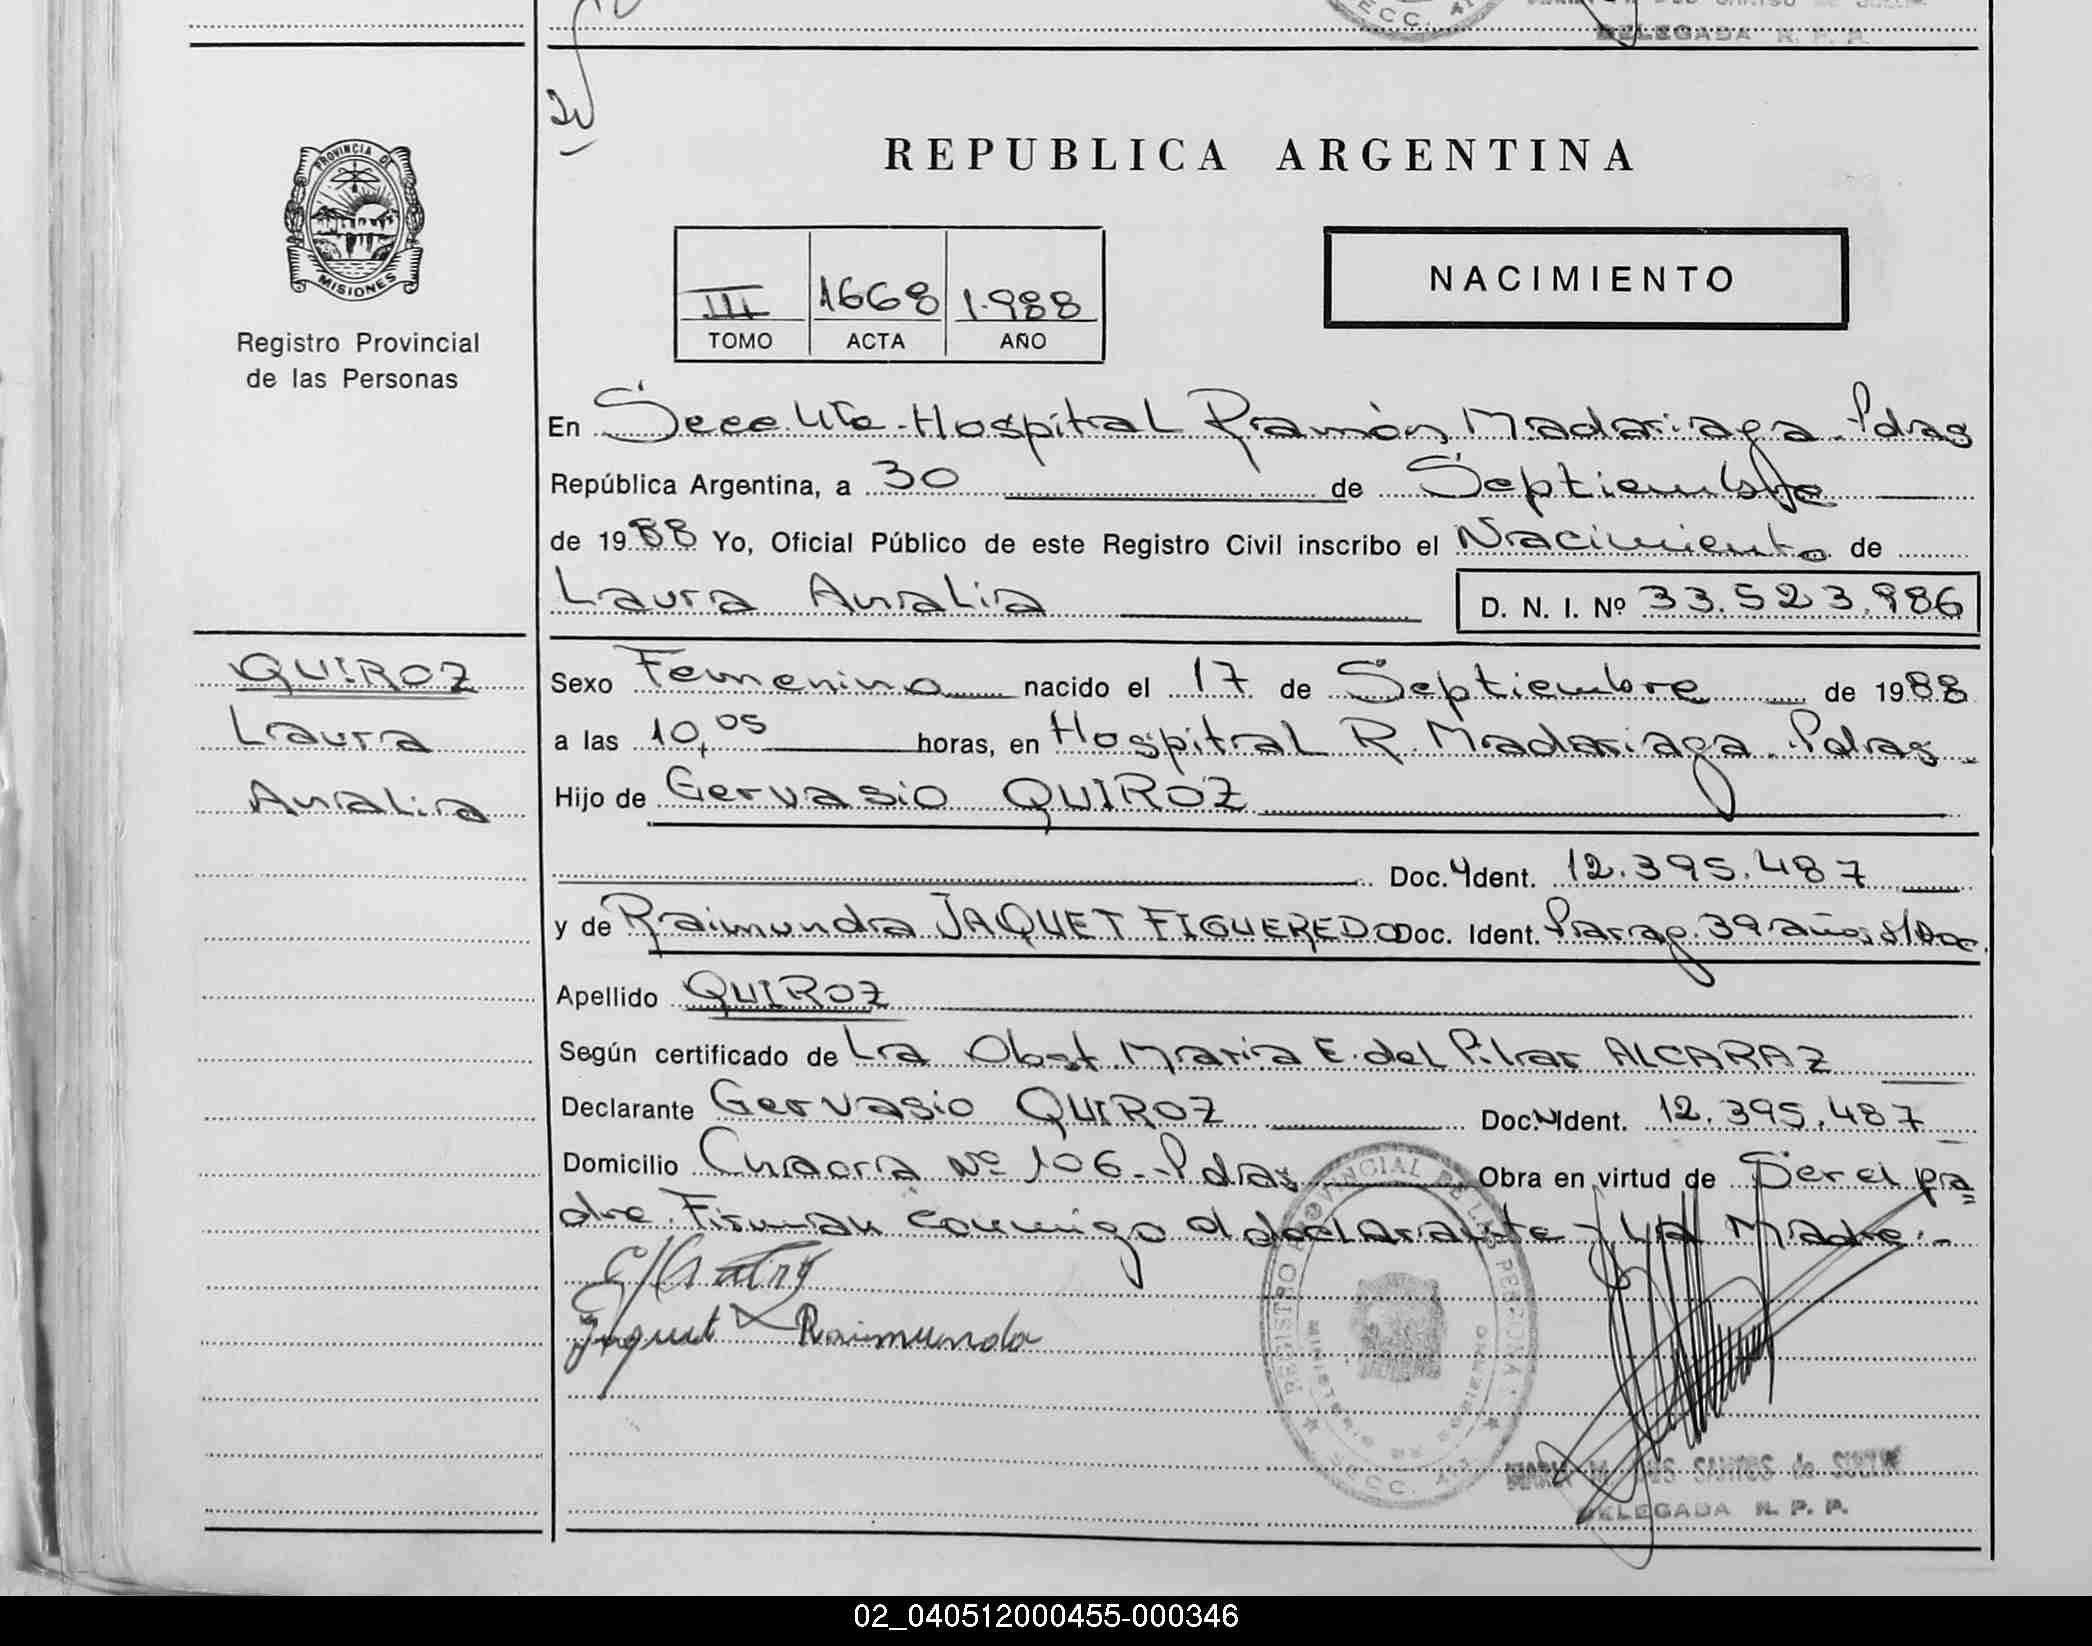 DELEGADA R. P. P.
PROVINCIA DE
MISIONES
Registro Provincial
de las Personas
REPUBLICA ARGENTINA
III 1668 1.988
TOMO ACTA AÑO
NACIMIENTO
En Secc. Hospital Ramón Madariaga - Pdas
República Argentina, a 30 de Septiembre
de 1988 Yo, Oficial Público de este Registro Civil inscribo el Nacimiento de
Laura Analia D. N. I. Nº 33.523.986
QUIROZ
Laura
Analia
Sexo Femenino nacido el 17 de Septiembre de 1988
a las 10,05 horas, en Hospital R. Madariaga - Pdas -
Hijo de Gervasio QUIROZ
Doc. Ident. 12.395.487
y de Raimunda JAQUET FIGUEREDO Doc. Ident. Parag. 39 años s/Doc.
Apellido QUIROZ
Según certificado de La Obst. Maria E. del Pilar ALCARAZ
Declarante Gervasio QUIROZ Doc. Ident. 12.395.487
Domicilio Nº 106 - Pdas Obra en virtud de Ser el pa=
dre. Firman conmigo el declarante y la Madre.-
Jaquet Raimunda
REGISTRO PROVINCIAL DE LAS PERSONAS
MINISTERIO DE GOBIERNO
SECC.
SANTOS de
DELEGADA R. P. P.
02_040512000455-000346